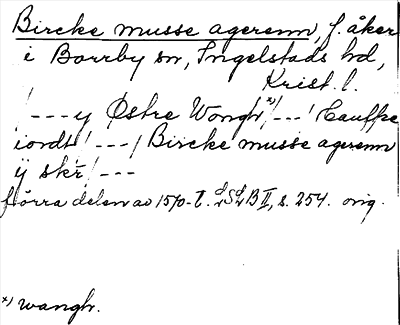 Bircke musse agerenn, f. åker
i Borrby sn, Ingelstads hd,
Krist. l.
/---y Østre Wongh,*) /---/ Cauffpe
iordt /---/ Bircke musse agerenn
ij skr /---
förra delen av 1570-t. LSLB II, s. 254. orig.
*) wangh.